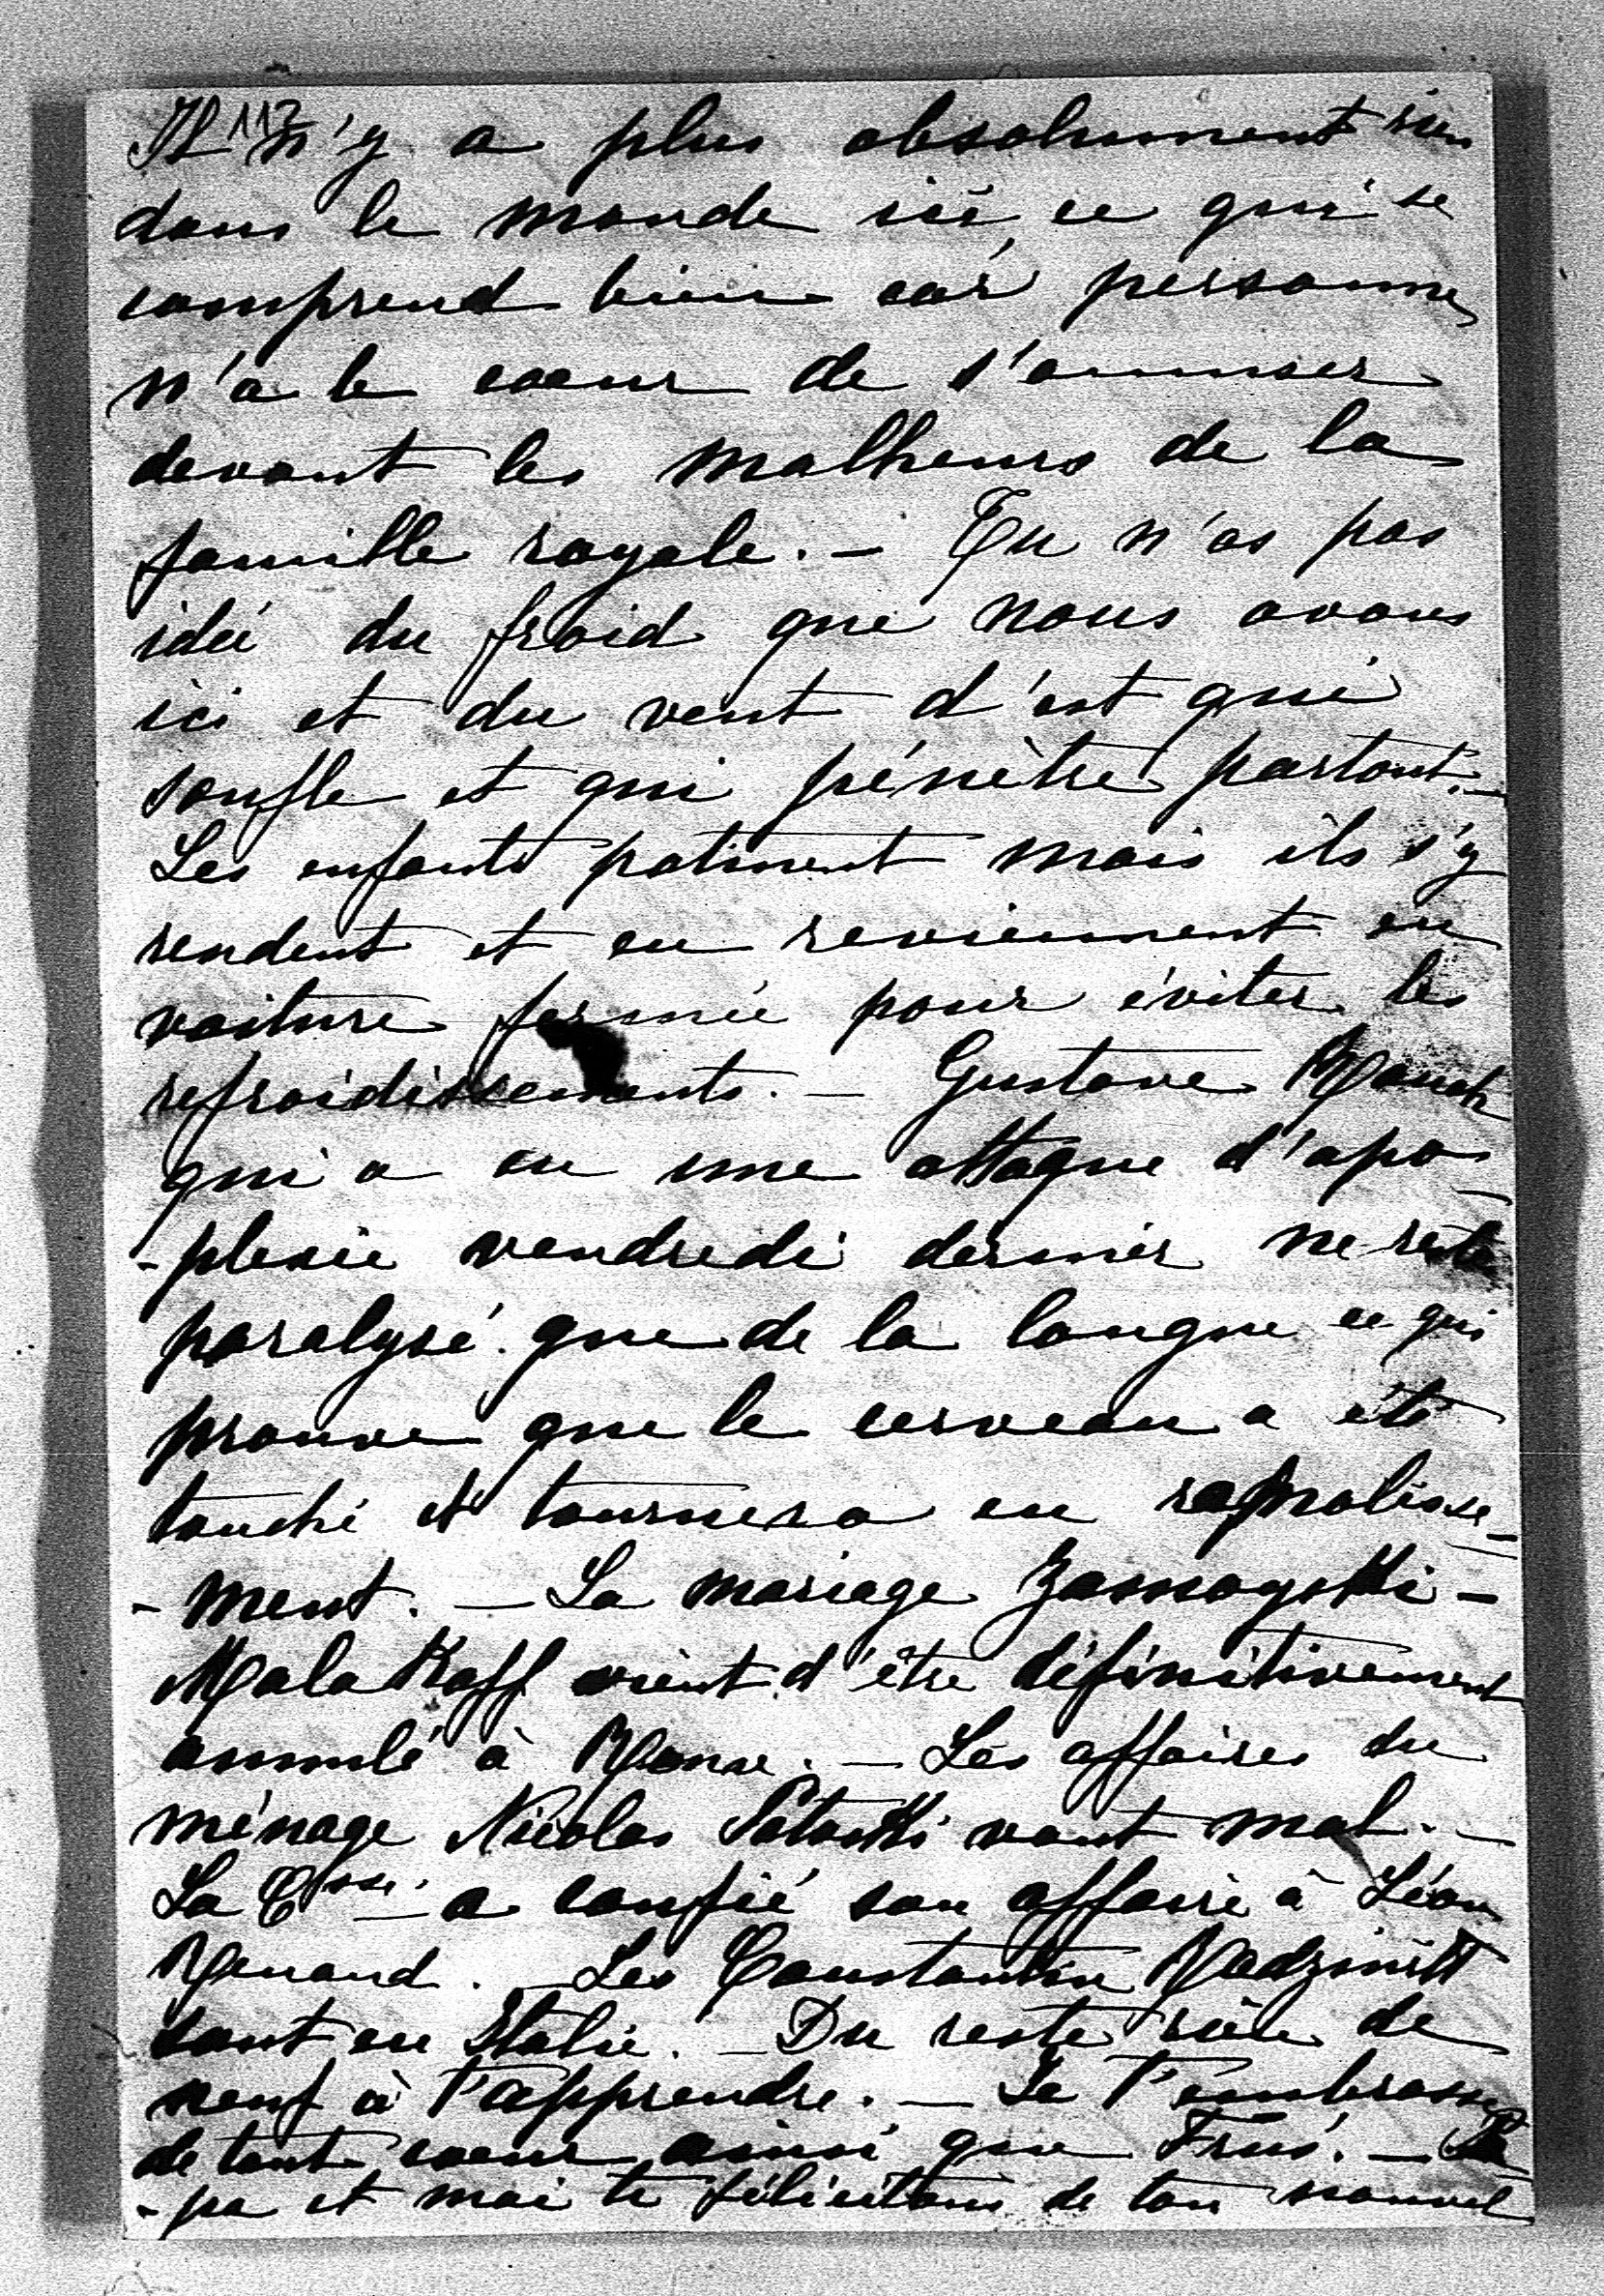 117
Il n'y a plus absolument rien
dans le monde ici, ce qui se
comprend bien car personne
n'a le coeur de s'amuser
devant les malheurs de la
famille royale. — Tu n'as pas
idée du froid que nous avons
ici et du vent d'est qui
soufle et qui pénètre partout. —
Les enfants patinent mais ils s'y
rendent et en reviennent en
voiture fermée pour éviter les
refroidissements. — Gustave
qui a eu une attaque d'apo-
-plexie vendredi dernier ne reste
paralysé que de la langue ce qui
prouve que le cerveau a été
touché et tournera en ramolisse-
-ment. — Le mariage Zamoyski -
Malakoff vient d'être définitivement
annulé à Rome. — Les affaires du
ménage Nicolas Potocki vont mal. —
La Csse. a confié son affaire à Léon
Renard. — Les Constantin Radziwill
sont en Italie. — Du reste rien de
neuf à t'apprendre. — Je t'embrasse
de tout coeur ainsi que — Pa
-pa et moi te félicitons de ton nouvel